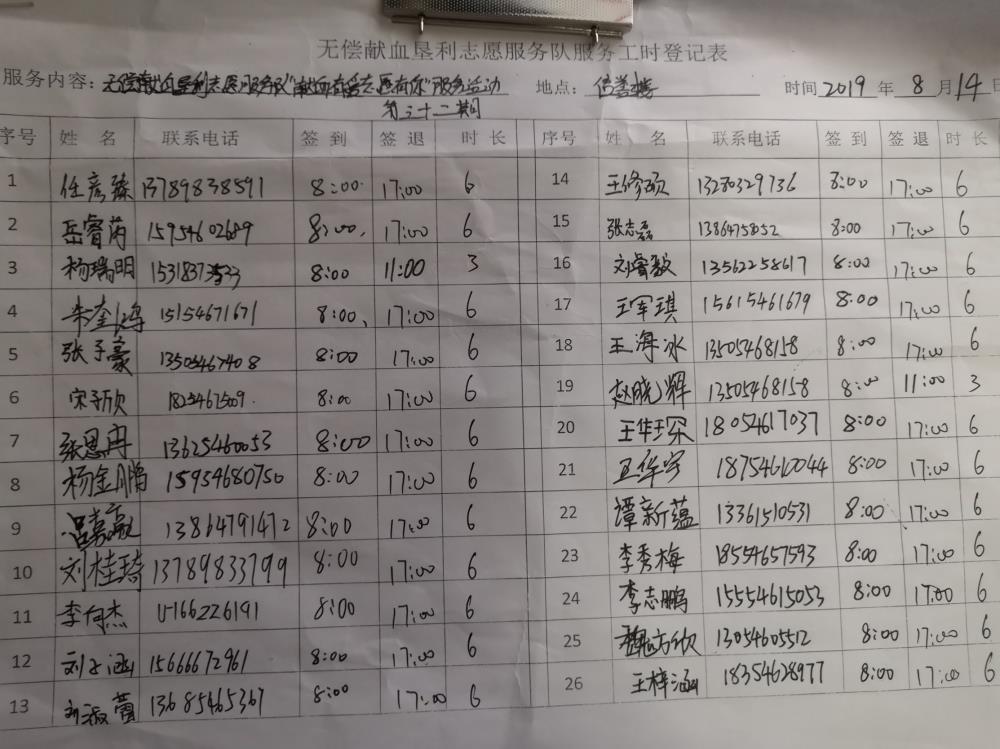 无偿献血垦利志愿服务队服务工时登记表
服务内容：无偿献血垦利志愿服务队"献血有你 志愿有你"服务活动 地点： 信义楼 时间 2019 年 8 月 14 日
第三十二期
序号 姓 名 联系电话 签 到 签 退 时 长 序号 姓 名 联系电话 签 到 签 退 时 长
1 任彦臻 13789838591 8:00 17:00 6 14 王修硕 13280329736 8:00 17:00 6
2 岳睿芮 15954602689 8:00 17:00 6 15 张志磊 8:00 17:00 6
3 杨瑞明 8:00 11:00 3 16 刘睿毅 13562258617 8:00 17:00 6
4 朱奎鸿 15154671671 8:00 17:00 6 17 王军琪 15615461679 8:00 17:00 6
5 张子豪 13505467408 8:00 17:00 6 18 王海冰 13505468158 8:00 17:00 6
6 宋予欣 8:00 17:00 6 19 赵晓辉 13505468158 8:00 11:00 3
7 张恩冉 13625460053 8:00 17:00 6 20 王华琛 18054617037 8:00 17:00 6
8 杨金鹏 15954680750 8:00 17:00 6 21 王华宇 18754610044 8:00 17:00 6
9 吕嘉敏 13864791472 8:00 17:00 6 22 谭新蕴 13361510531 8:00 17:00 6
10 刘桂琦 13789833799 8:00 17:00 6 23 李秀梅 18554657593 8:00 17:00 6
11 李向杰 8:00 17:00 6 24 李志鹏 15554615053 8:00 17:00 6
12 刘子涵 15666672961 8:00 17:00 6 25 13054605512 8:00 17:00 6
13 刘淑蕾 13685465367 8:00 17:00 6 26 王梓涵 18354628977 8:00 17:00 6